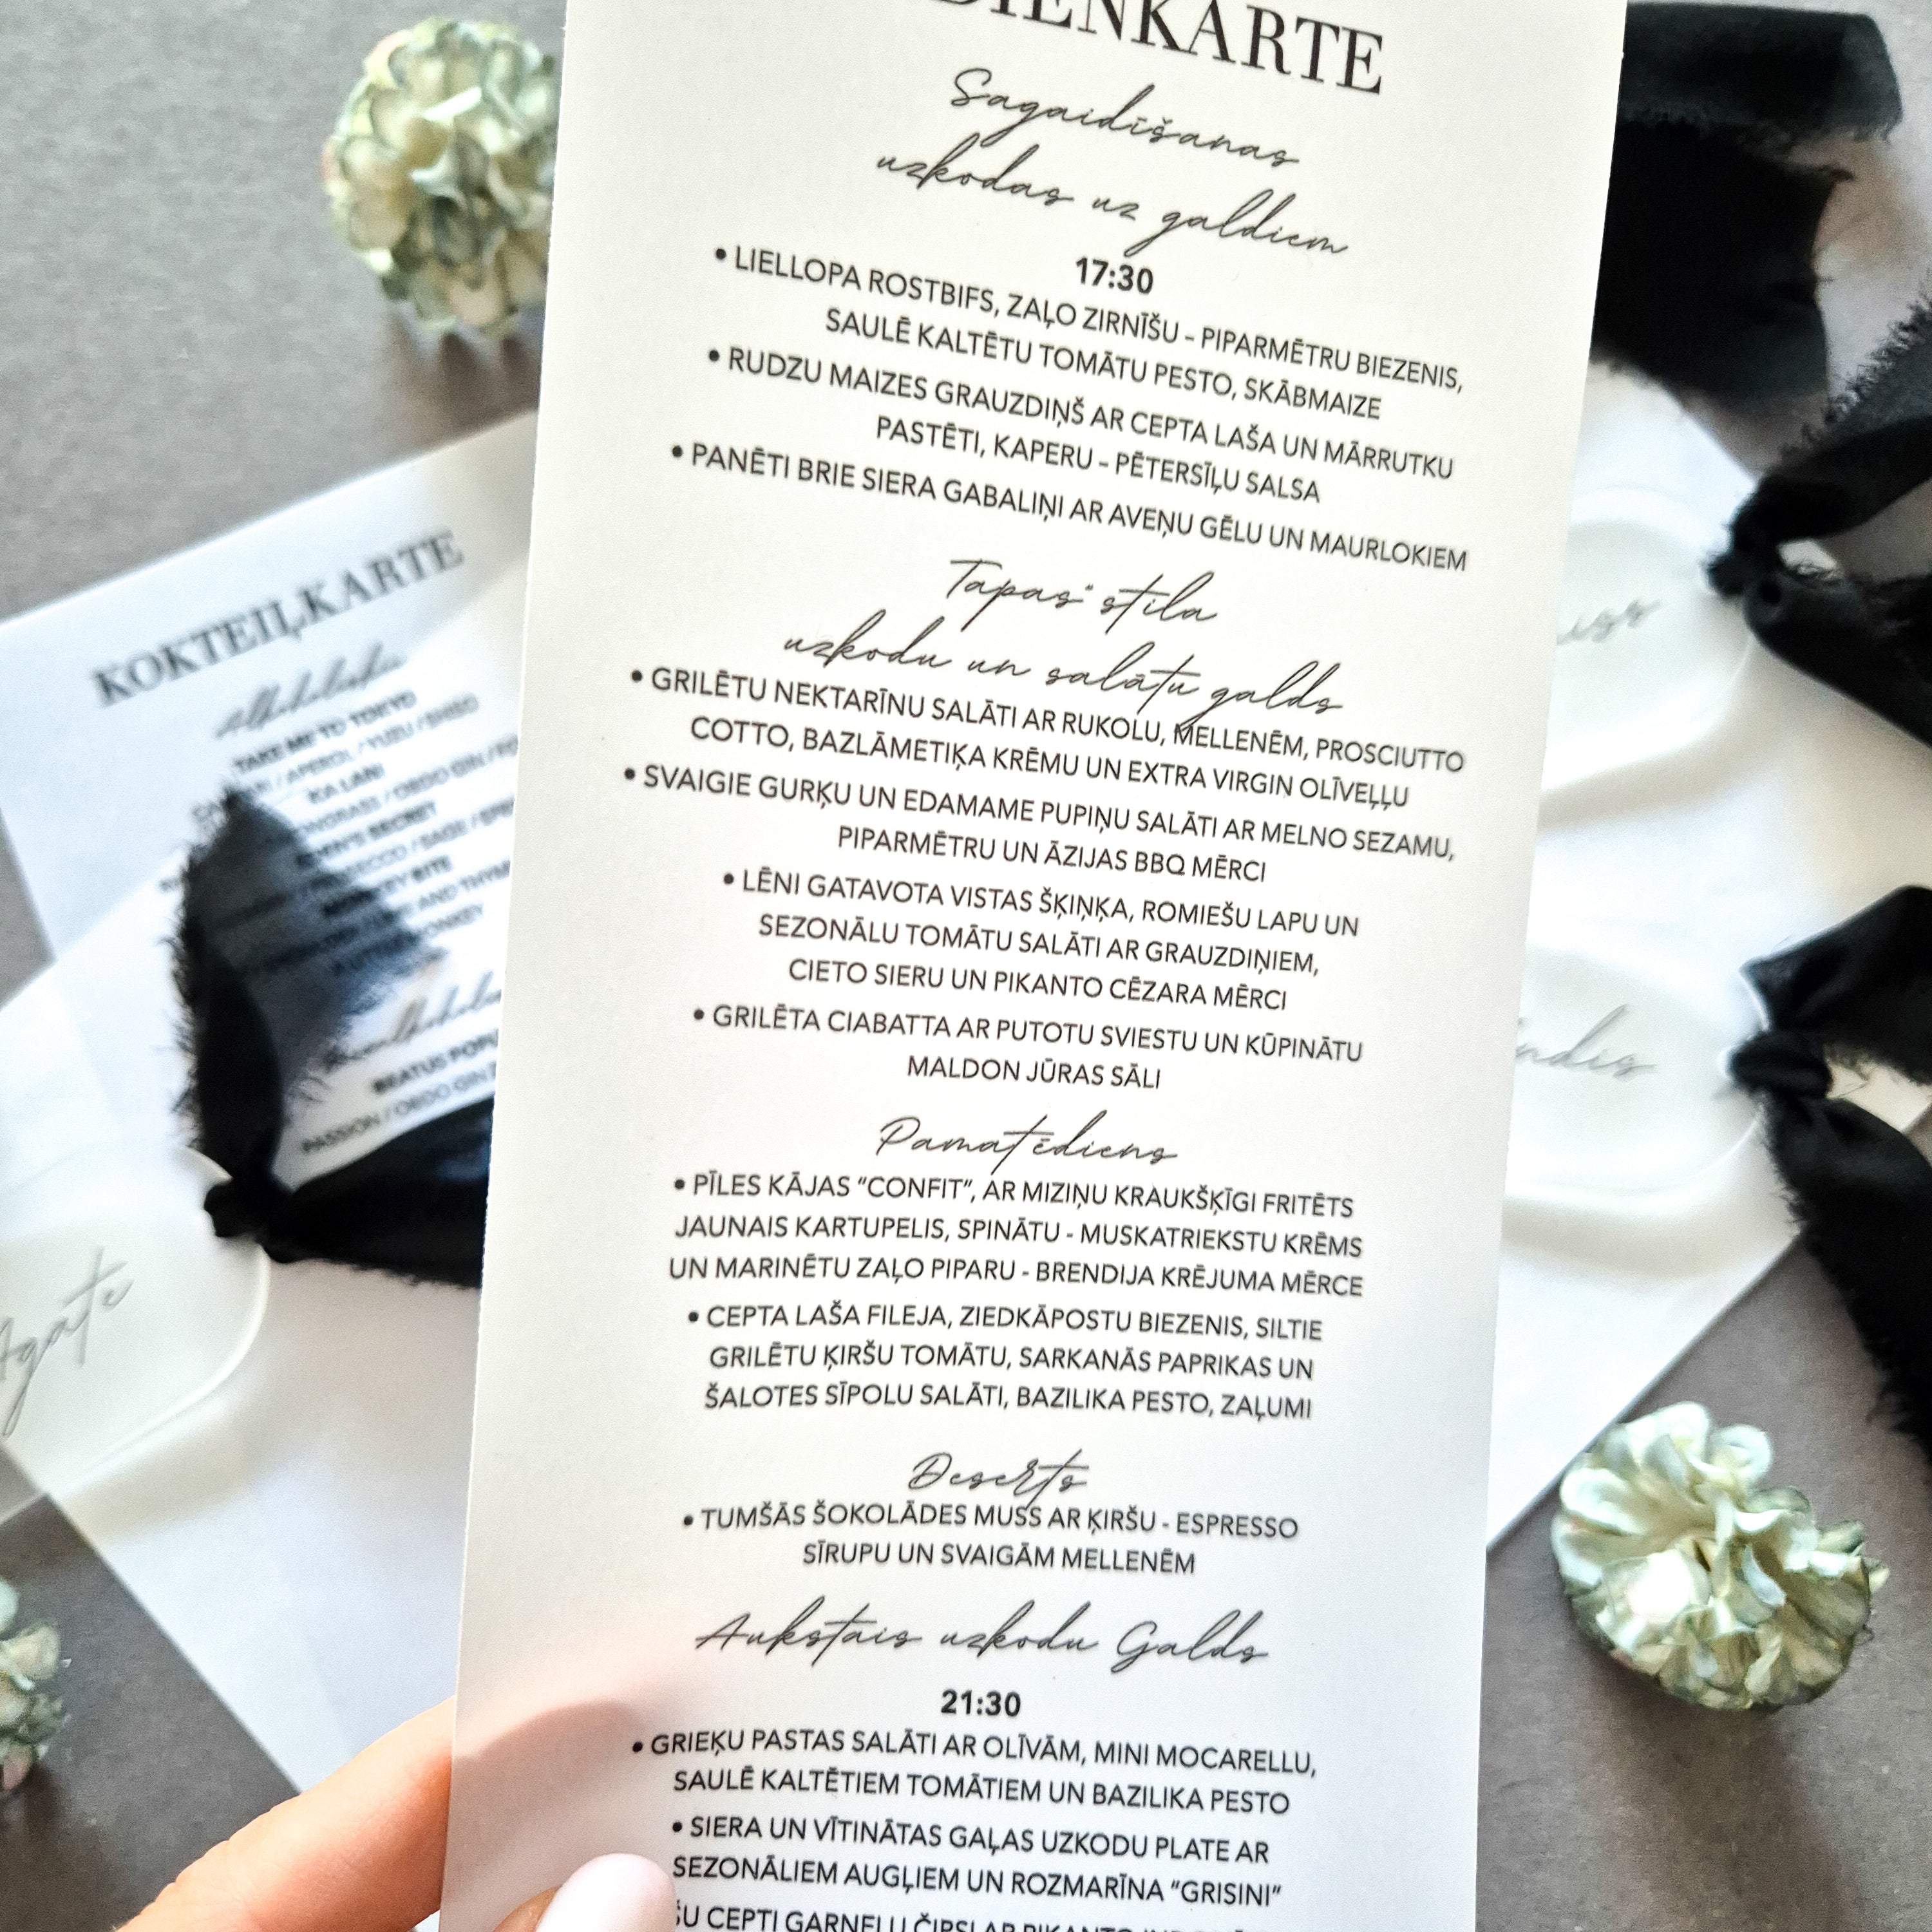 Sagaidīšanas
uzkodas uz galdiem
17:30
• LIELLOPA ROSTBIFS, ZAĻO ZIRNĪŠU – PIPARMĒTRU BIEZENIS,
SAULĒ KALTĒTU TOMĀTU PESTO, SKĀBMAIZE
• RUDZU MAIZES GRAUZDIŅŠ AR CEPTA LAŠA UN MĀRRUTKU
PASTĒTI, KAPERU – PĒTERSĪĻU SALSA
• PANĒTI BRIE SIERA GABALIŅI AR AVEŅU GĒLU UN MAURLOKIEM
Tapas" stila
uzkodu un salātu galds
• GRILĒTU NEKTARĪNU SALĀTI AR RUKOLU, MELLENĒM, PROSCIUTTO
COTTO, BAZLĀMETIĶA KRĒMU UN EXTRA VIRGIN OLĪVEĻĻU
• SVAIGIE GURĶU UN EDAMAME PUPIŅU SALĀTI AR MELNO SEZAMU,
PIPARMĒTRU UN ĀZIJAS BBQ MĒRCI
• LĒNI GATAVOTA VISTAS ŠĶIŅĶA, ROMIEŠU LAPU UN
SEZONĀLU TOMĀTU SALĀTI AR GRAUZDIŅIEM,
CIETO SIERU UN PIKANTO CĒZARA MĒRCI
• GRILĒTA CIABATTA AR PUTOTU SVIESTU UN KŪPINĀTU
MALDON JŪRAS SĀLI
Pamatēdiens
• PĪLES KĀJAS “CONFIT”, AR MIZIŅU KRAUKŠĶĪGI FRITĒTS
JAUNAIS KARTUPELIS, SPINĀTU - MUSKATRIEKSTU KRĒMS
UN MARINĒTU ZAĻO PIPARU - BRENDIJA KRĒJUMA MĒRCE
• CEPTA LAŠA FILEJA, ZIEDKĀPOSTU BIEZENIS, SILTIE
GRILĒTU ĶIRŠU TOMĀTU, SARKANĀS PAPRIKAS UN
ŠALOTES SĪPOLU SALĀTI, BAZILIKA PESTO, ZAĻUMI
Deserts
• TUMŠĀS ŠOKOLĀDES MUSS AR ĶIRŠU - ESPRESSO
SĪRUPU UN SVAIGĀM MELLENĒM
Aukstais uzkodu Galds
21:30
• GRIEĶU PASTAS SALĀTI AR OLĪVĀM, MINI MOCARELLU,
SAULĒ KALTĒTIEM TOMĀTIEM UN BAZILIKA PESTO
• SIERA UN VĪTINĀTAS GAĻAS UZKODU PLATE AR
SEZONĀLIEM AUGĻIEM UN ROZMARĪNA “GRISINI”
CEPTI GARNEĻU ČIPSI AR
KOKTEIĻKARTE
TAKE ME TO TOKYO
/ APEROL / YUZU / SHISO
BEATUS
PASSION / ORDO GIN
Agate